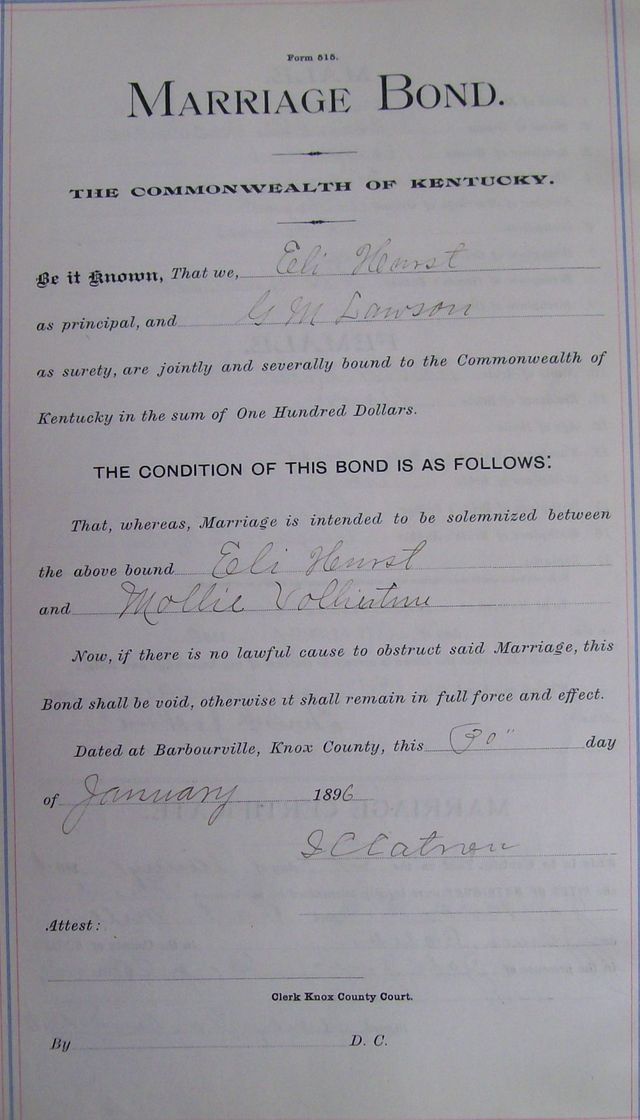 Form 515.
MARRIAGE BOND.
THE COMMONWEALTH OF KENTUCKY.
Be it Known, That we, Eli Hurst
as principal, and G M Lawson
as surety, are jointly and severally bound to the Commonwealth of
Kentucky in the sum of One Hundred Dollars.
THE CONDITION OF THIS BOND IS AS FOLLOWS:
That, whereas, Marriage is intended to be solemnized between
the above bound Eli Hurst
and Mollie
Now, if there is no lawful cause to obstruct said Marriage, this
Bond shall be void, otherwise it shall remain in full force and effect.
Dated at Barbourville, Knox County, this 30" day
of January 1896
Catron
Attest:
Clerk Knox County Court.
By D. C.